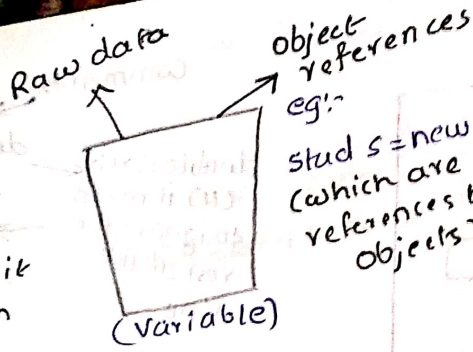 Raw data
object
references
eg:-
stud s = new
(which are
references
objects
it
(Variable)